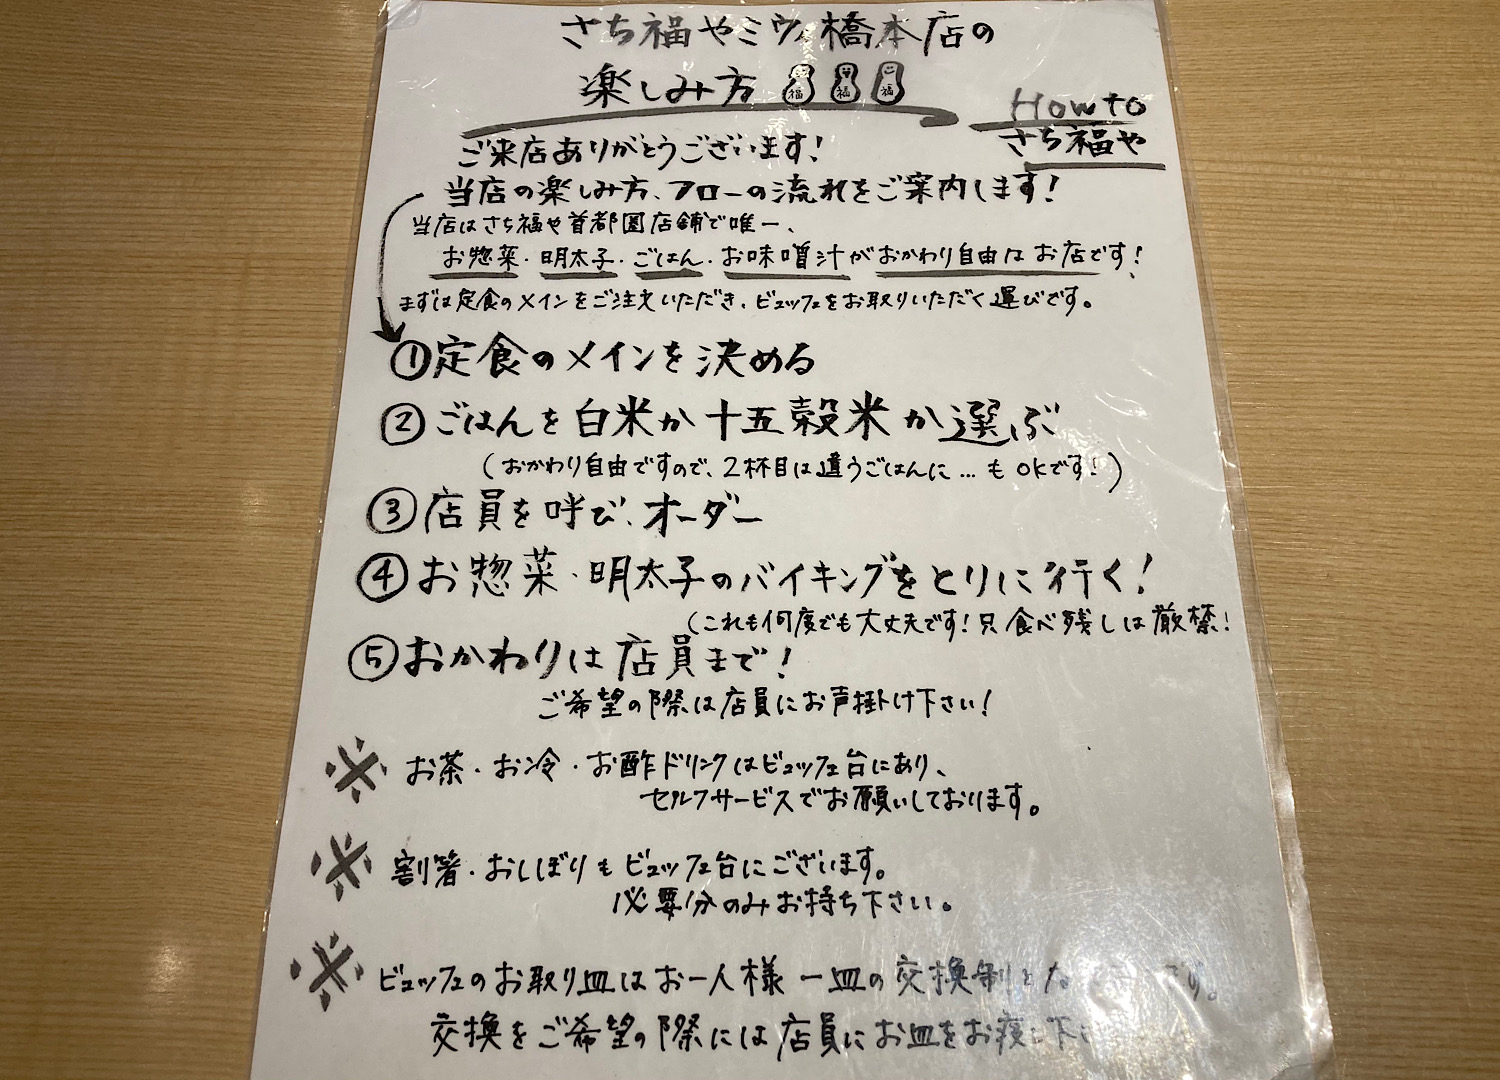 さち福やミウィ橋本店の
楽しみ方 福 福 福
How to
さち福や
ご来店ありがとうございます!
当店の楽しみ方、フローの流れをご案内します!
当店はさち福や首都圏店舗で唯一、
お惣菜・明太子・ごはん・お味噌汁がおかわり自由なお店です!
まずは定食のメインをご注文いただき、ビュッフェをお取りいただく運びです。
①定食のメインを決める
②ごはんを白米か十五穀米か選ぶ
(おかわり自由ですので、2杯目は違うごはんに…もOKです!)
③店員を呼び、オーダー
④お惣菜・明太子のバイキングをとりに行く!
(これも何度でも大丈夫です!只食べ残しは厳禁!
⑤おかわりは店員まで!
ご希望の際は店員にお声掛け下さい!
※ お茶・お冷・お酢ドリンクはビュッフェ台にあり、
セルフサービスでお願いしております。
※ 割箸・おしぼりもビュッフェ台にございます。
必要分のみお持ち下さい。
※ ビュッフェのお取り皿はお一人様一皿の交換制とな です。
交換をご希望の際には店員にお皿をお渡し下さ